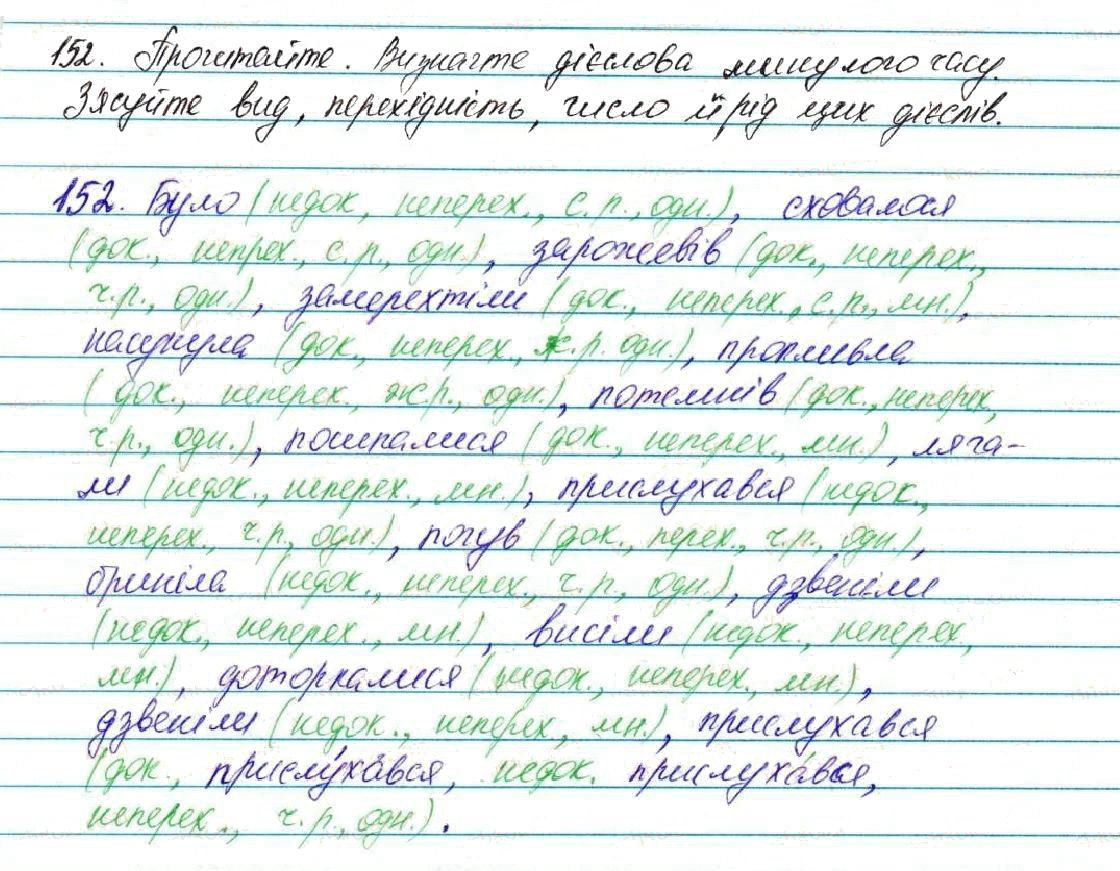 152. Прочитайте. Визначте дієслова минулого часу.
Зясуйте вид, перехідність, число й рід цих дієслів.
152. Було (недок, неперех., с.р., одн.), сховалося
(док., непрех., с.р., одн.), зарожевів (док., неперех.,
ч.р., одн.), замерехтіли (док., неперех., с.р., мн.),
насунула (док., неперех., ж.р. одн.), пропливла
(док., неперех., ж.р., одн.), потемнів (док., неперех,
ч.р., одн.), посипалися (док., неперех., мн.), ляга-
ли (недок., неперех., мн.), прислухався (недок.,
неперех., ч.р., одн.), почув (док., перех., ч.р., одн.),
бриніла (недок., неперех., ч.р., одн.), дзвеніли
(недок., неперех., мн.), висіли (недок., неперех,
мн.), доторкалися (недок., неперех., мн.),
дзвеніли (недок., неперех, мн.), прислухався
(док., прислу́хався, недок. прислуха́вся,
неперех., ч.р., одн.).